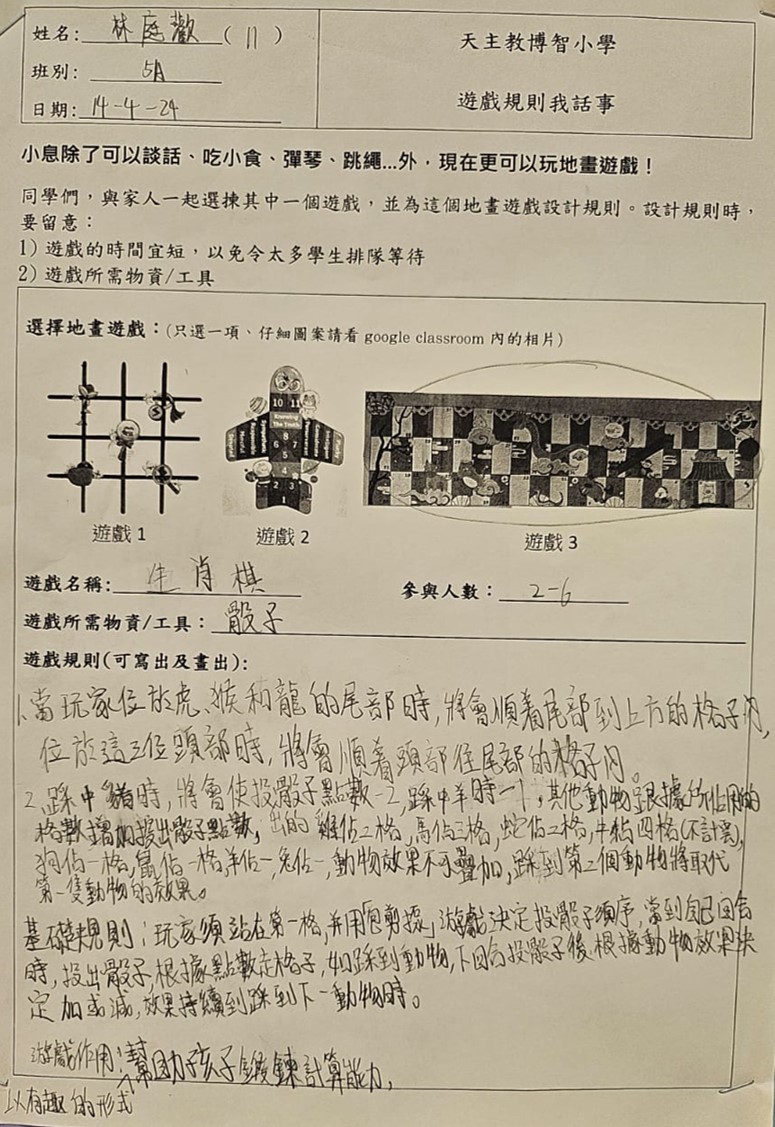 姓名: 林庭歡 ( 11 )
班別: 5A
日期: 14-4-24
天主教博智小學
遊戲規則我話事
小息除了可以談話、吃小食、彈琴、跳繩...外，現在更可以玩地畫遊戲！
同學們，與家人一起選揀其中一個遊戲，並為這個地畫遊戲設計規則。設計規則時，
要留意：
1) 遊戲的時間宜短，以免令太多學生排隊等待
2) 遊戲所需物資/工具
選擇地畫遊戲：(只選一項、仔細圖案請看 google classroom 內的相片)
10 11
Knowing
The Truth
8
6 7
5
4
2 3
1
遊戲 1
遊戲 2
遊戲 3
遊戲名稱: 生肖棋
參與人數： 2-6
遊戲所需物資/工具： 骰子
遊戲規則(可寫出及畫出):
1. 當玩家位於虎、猴和龍的尾部時，將會順着尾部到上方的格子內，
位於這三位頭部時，將會順着頭部往尾部的格子內。
2. 踩中豬時，將會使投骰子點數-2，踩中羊時-1，其他動物跟據所佔用的
格數增加投出骰子點數，出的雞佔二格，馬佔三格，蛇佔二格，牛黏四格(不計雲)，
狗佔一格，鼠佔一格，羊佔一，兔佔一，動物效果不可疊加，踩到第二個動物將取代
第一隻動物的效果。
基礎規則：玩家須站在第一格，并用「包剪揼」遊戲決定投骰子順序，當到自己回合
時，投出骰子，根據點數走格子，如踩到動物，下回合投骰子後根據動物效果決
定加或減，效果持續到踩到下一動物時。
遊戲作用：幫助孩子鍛鍊計算能力，
以有趣的形式